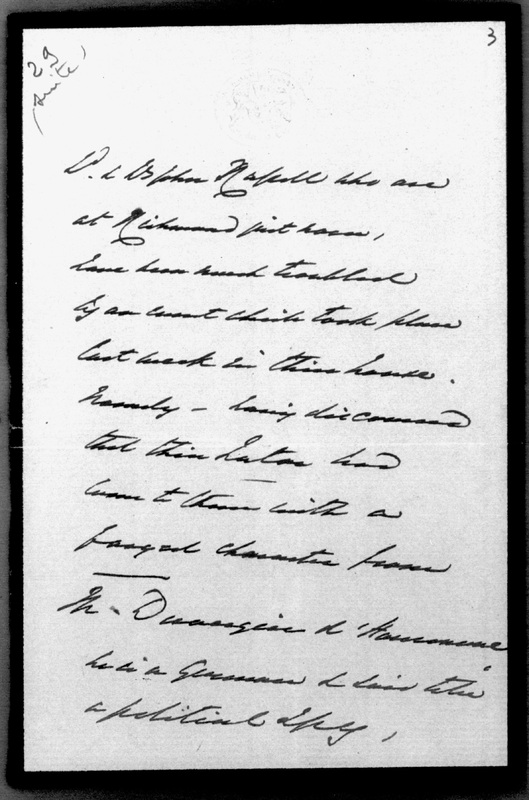 3
29
(suite)
Ld. & Ly John Russell who are
at Richmond just now,
have been much troubled
by an event which took place
last week in their house.
Namely - having discovered
that their Tutor had
come to them with a
forged character from
Mr. Duvergier d'Hauranne
he is a German & said to be
a political Spy,